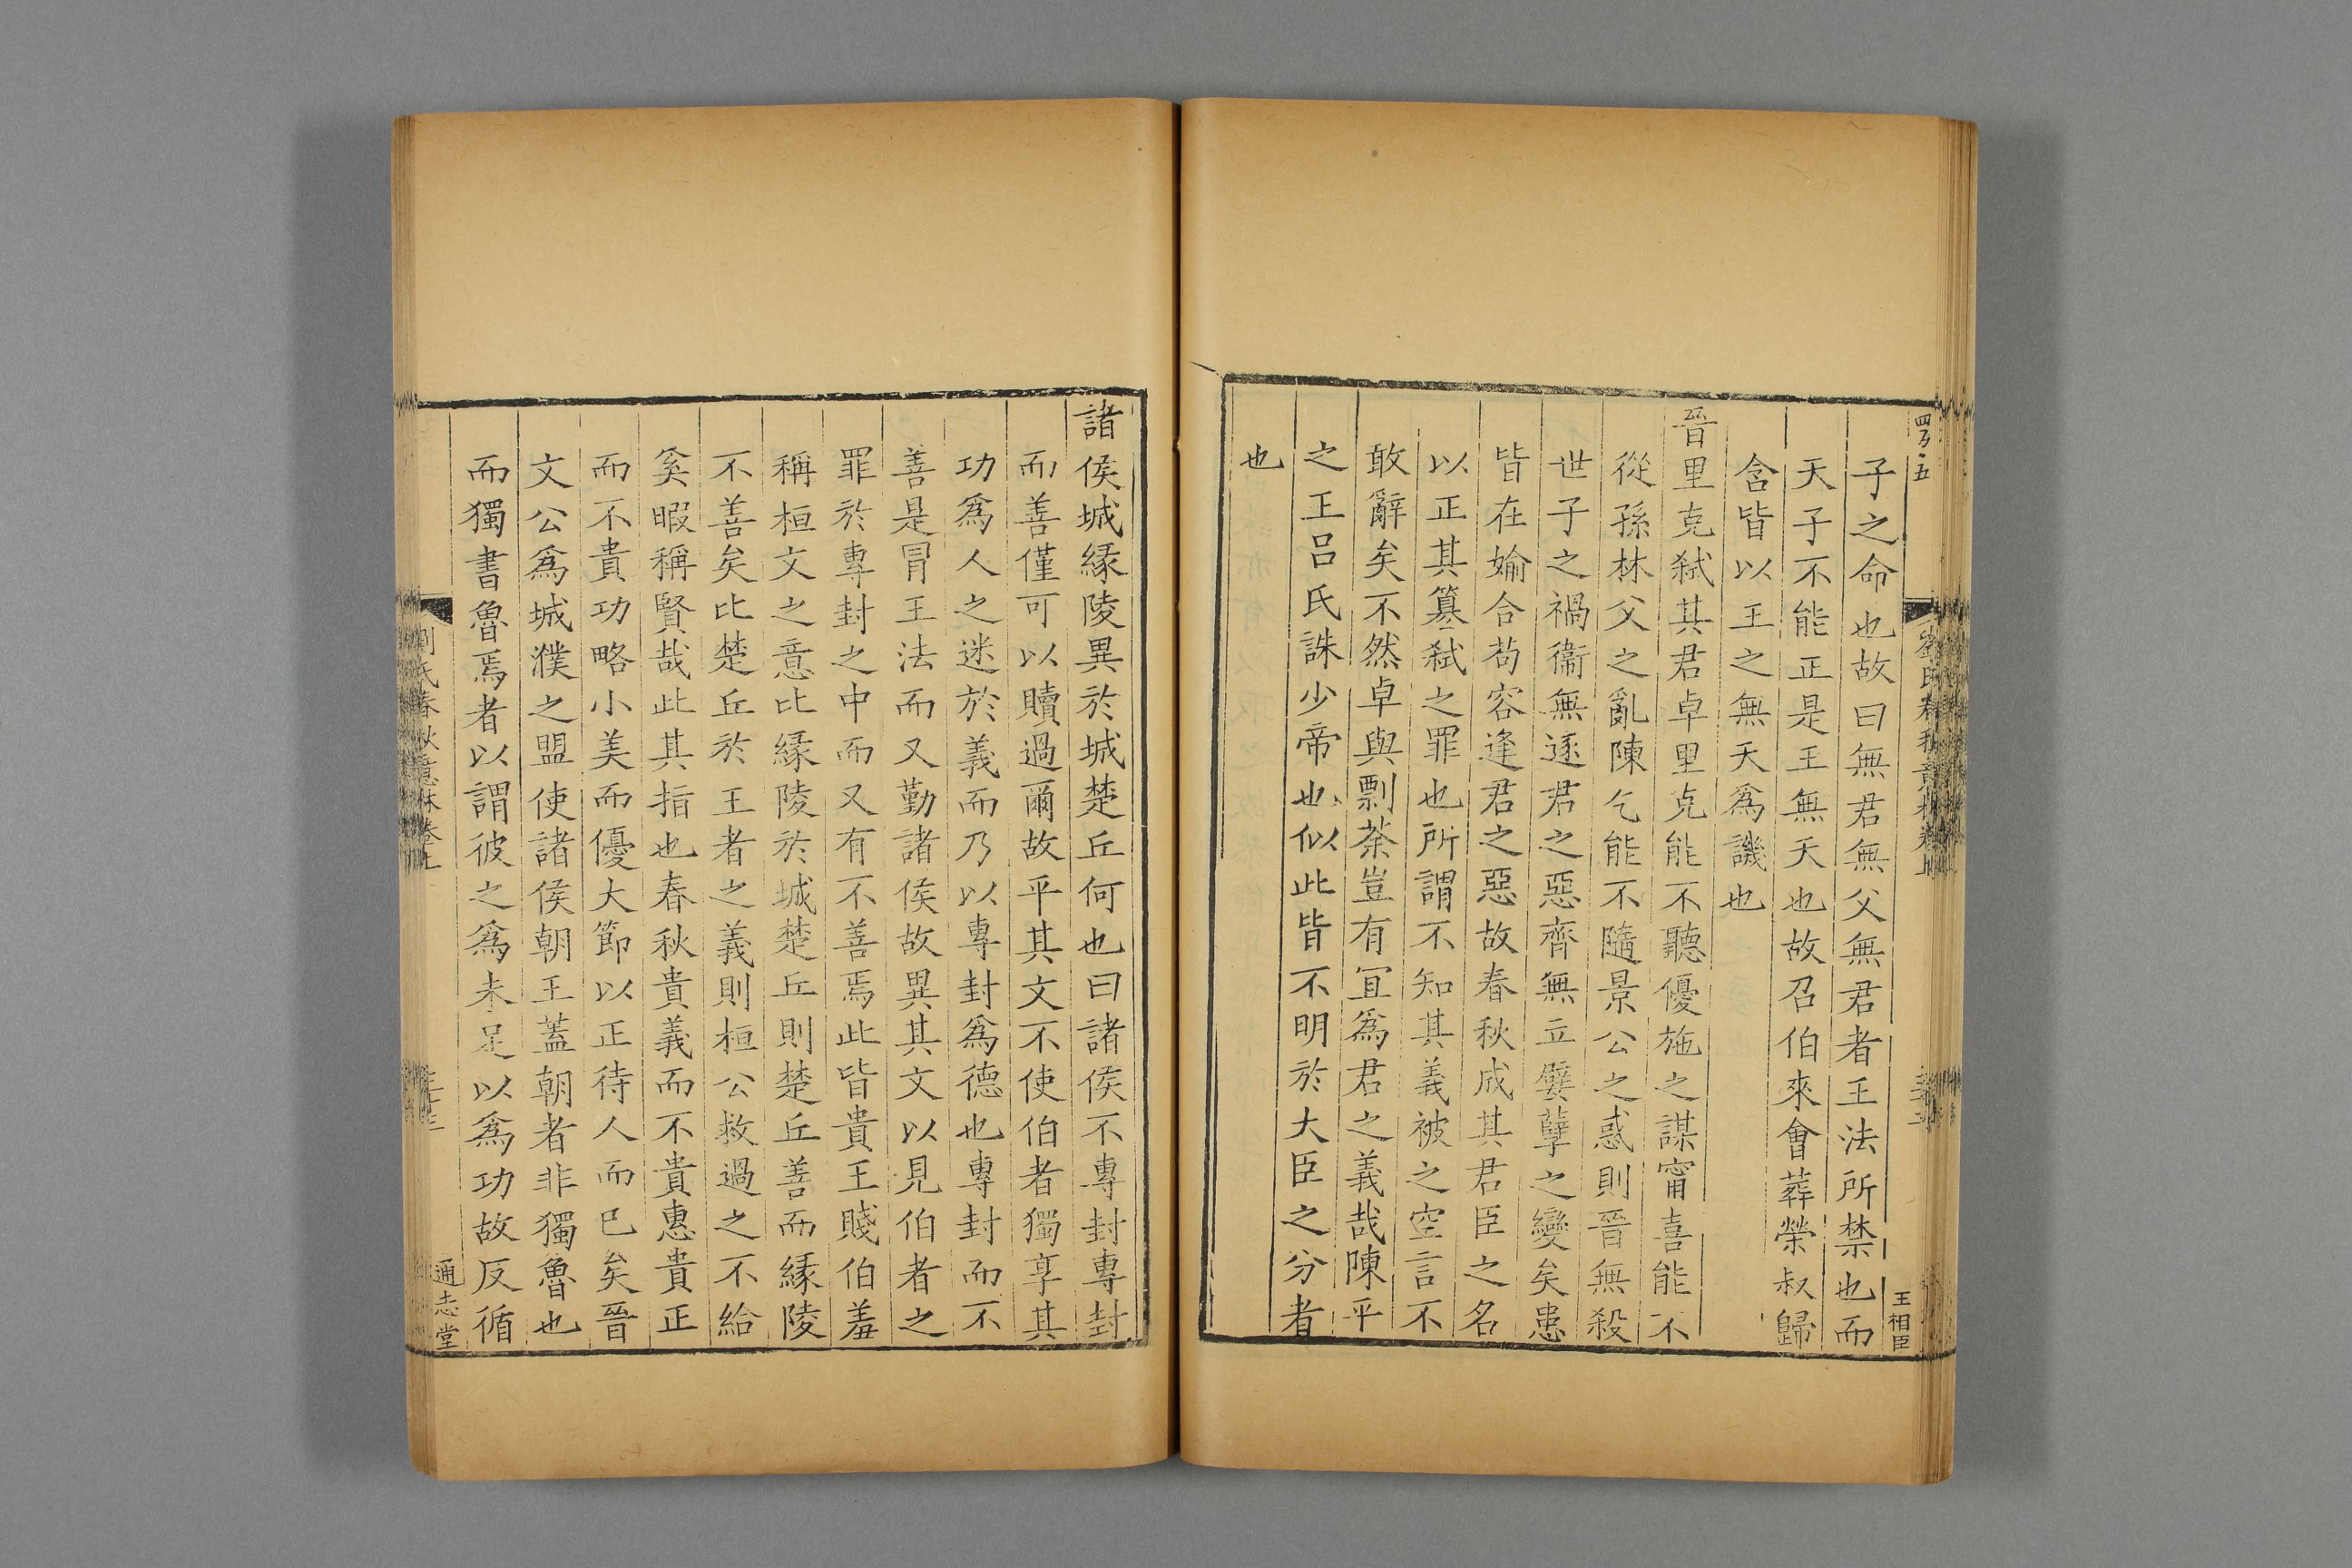 子之命也故曰無君無父無君者王法所禁也而
天子不能正是王無天也故召伯來會葬榮叔歸
含皆以王之無天爲譏也
晉里克弑其君卓里克能不聽優施之謀甯喜能不
從孫林父之亂陳乞能不隨景公之惑則晉無殺
世子之禍衞無逐君之惡齊無立嬖孽之變矣患
皆在婾合苟容逢君之惡故春秋成其君臣之名
以正其簒弑之罪也所謂不知其義被之空言不
敢辭矣不然卓與剽荼豈有冝爲君之義哉陳平
之王吕氏誅少帝也似此皆不明於大臣之分者
也
王相臣
諸侯城緣陵異於城楚丘何也曰諸侯不專封專封
而善僅可以贖過爾故平其文不使伯者獨享其
功爲人之迷於義而乃以專封爲德也專封而不
善是冒王法而又勤諸侯故異其文以見伯者之
罪於專封之中而又有不善焉此皆貴王賤伯羞
稱桓文之意比緣陵於城楚丘則楚丘善而緣陵
不善矣比楚丘於王者之義則桓公救過之不給
奚暇稱賢哉此其指也春秋貴義而不貴惠貴正
而不貴功略小美而優大節以正待人而巳矣晉
文公爲城濮之盟使諸侯朝王蓋朝者非獨魯也
而獨書魯焉者以謂彼之爲未足以爲功故反循
劉氏春秋意林卷上
通志堂